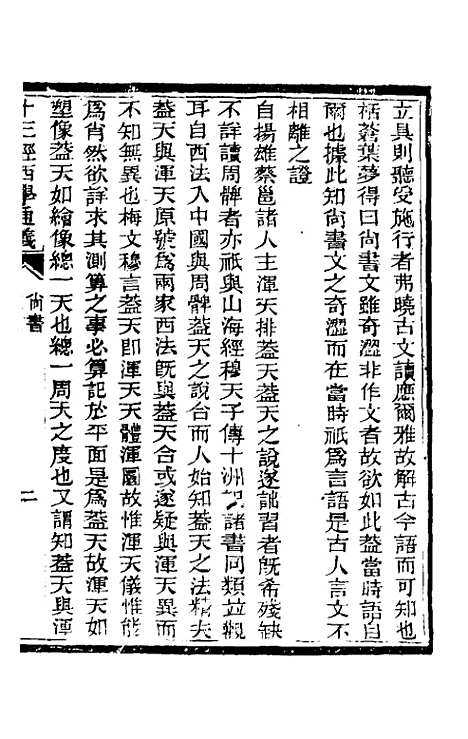 立具則聽受施行者弗曉古文讀應爾雅故解古今語而可知也
括蒼葉夢得曰尙書文雖奇澀非作文者故欲如此葢當時語自
爾也據此知尙書文之奇澀而在當時祇爲言語是古人言文不
相離之證
自揚雄蔡邕諸人主渾天排葢天葢天之說遂詘習者旣希殘缺
不詳讀周髀者亦祇與山海經穆天子傳十洲記諸書同類並觀
耳自西法入中國與周髀葢天之說合而人始知葢天之法精夫
葢天與渾天原號爲兩家西法旣與葢天合或遂疑與渾天異而
不知無異也梅文穆言葢天卽渾天天體渾圜故惟渾天儀惟能
爲肖然欲詳求其測算之事必算記於平面是爲葢天故渾天如
塑像葢天如繪像總一天也總一周天之度也又謂知葢天與渾
十三經西學通義
尙書
二